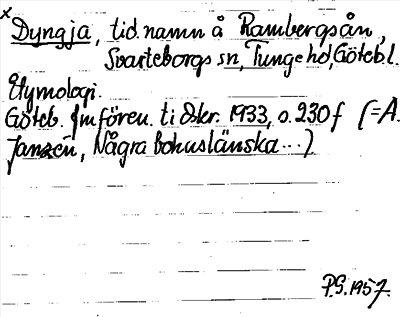 x Dyngja, tid. namn å Rambergsån,
Svarteborgs sn, Tunge hd, Göteb. l.
Etymologi.
Göteb. fmfören. tidskr. 1933, s. 230 f (= A.
Janzén, Några bohuslänska...)
P.G. 1957.